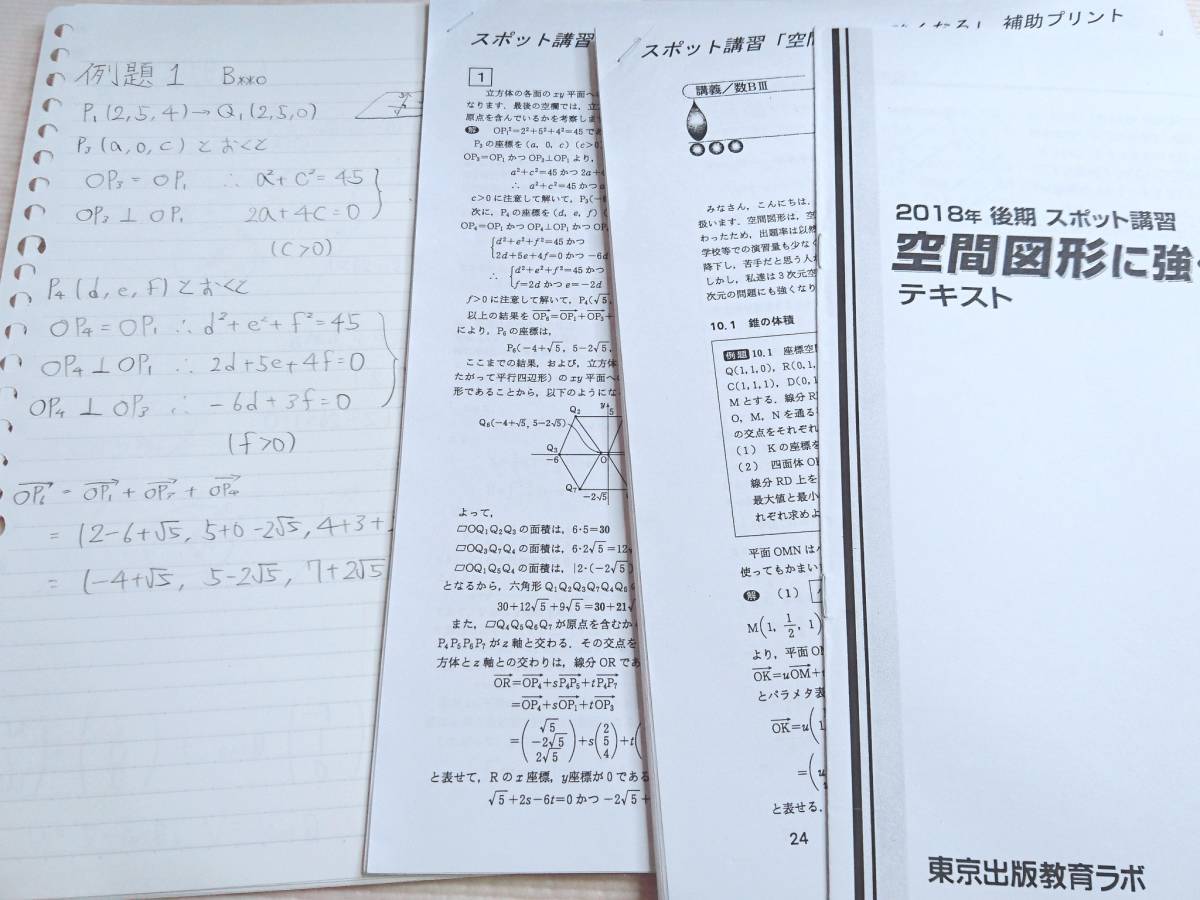 例題1 B**○
P₁(2,5,4)→Q₁(2,5,0)
P₃(a,0,c)とおくと
OP₃=OP₁ ∴ a²+c²=45
OP₃⊥OP₁ 2a+4c=0
(c>0)
P₄(d,e,f)とおくと
OP₄=OP₁ ∴ d²+e²+f²=45
OP₄⊥OP₁ ∴ 2d+5e+4f=0
OP₄⊥OP₃ ∴ -6d+3f=0
(f>0)
=(2-6+√5, 5+0-2√5, 4+3+
=(-4+√5, 5-2√5, 7+2√5
スポット講習
1
立方体の各面のxy平面へ
なります.最後の空欄では,立
原点を含んでいるかを考察しま
解 OP₁²=2²+5²+4²=45であ
P₃の座標を(a, 0, c)(c>0
OP₃=OP₁かつOP₃⊥OP₁より,
a²+c²=45かつ2a+4
∴ a²+c²=45かつa
c>0に注意して解いて,P₃(-6
次に,P₄の座標を(d, e, f)(
OP₄=OP₁かつOP₄⊥OP₁かつOP
d²+e²+f²=45かつ
2d+5e+4f=0かつ-6d
∴ d²+e²+f²=45かつ
f=2dかつe=-2d
f>0に注意して解いて,P₄(√5,
以上の結果をOP₆=OP₁+OP₃+
により,P₆の座標は,
P₆(-4+√5, 5-2√5,
ここまでの結果,および,立方体
たがって平行四辺形)のxy平面へ
形であることから,以下のようにな
Q₂ y 5
Q₆(-4+√5, 5-2√5)
Q₃
-6 O
Q₇ -2√5
よって,
▱OQ₁Q₂Q₃の面積は,6・5=30
▱OQ₃Q₇Q₄の面積は,6・2√5=12
▱OQ₁Q₅Q₄の面積は,|2・(-2√5)
となるから,六角形Q₁Q₂Q₃Q₇Q₄Q₅
30+12√5+9√5=30+21√
また,▱Q₄Q₅Q₆Q₇が原点を含むか
P₄P₅P₆P₇がz軸と交わる.その交点を
方体とz軸との交わりは,線分ORであ
OR=OP₄+sP₄P₅+tP₄P₇
=OP₄+sOP₁+tOP₃
=(√5 -2√5 2√5)+s(2 5 4)+t(
と表せて,Rのx座標,y座標が0である
√5+2s-6t=0かつ-2√5+
スポット講習「空間
講義/数BⅢ
みなさん,こんにちは.
扱います.空間図形は,空
わったため,出題率は以然
学校等での演習量も少なく
降下し,苦手だと思う人
しかし,私達は3次元空
次元の問題にも強くなり
10.1 錐の体積
例題 10.1 座標空間
Q(1,1,0), R(0,1,
C(1,1,1), D(0,1
Mとする.線分R
O, M, Nを通る
の交点をそれぞれ
(1) Kの座標を
(2) 四面体O
線分RD上を
最大値と最小
れぞれ求めよ
平面OMNは
使ってもかまい
解 (1)
M(1, 1/2, 1)
より,平面O
OK=uOM+
とパラメタ表
OK=u(1
=(u
と表せる.
24
補助プリント
2018年 後期 スポット講習
空間図形に強
テキスト
東京出版教育ラボ